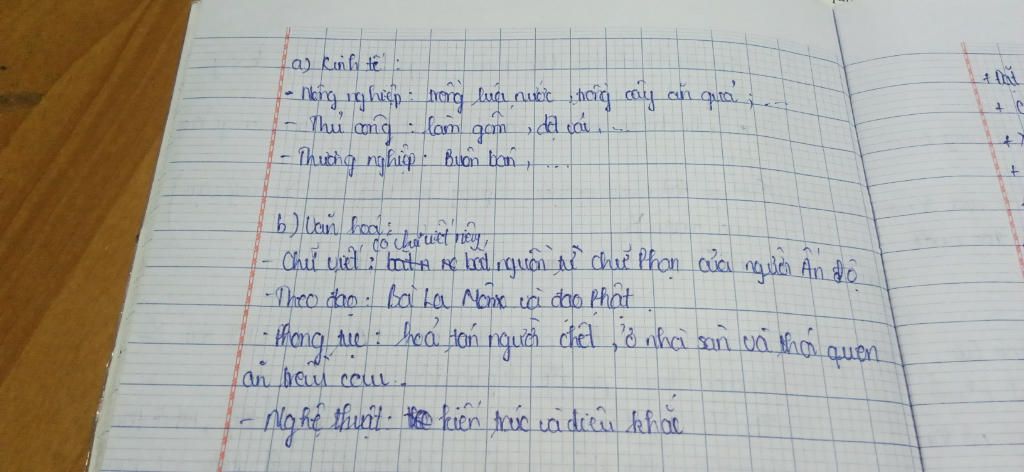 a) Kinh tế :
- Nông nghiệp : trồng lúa nước, trồng cây ăn quả ; ...
- Thủ công : làm gốm , dệt vải , ...
- Thương nghiệp : Buôn bán , ...
b) Văn hoá :
có chữ viết riêng,
- Chữ viết : bắt nguồn từ chữ Phạn của người Ấn Độ
- Theo đạo : Bà La Môn và đạo Phật
- Phong tục : hoả táng người chết , ở nhà sàn và thói quen
ăn trầu cau..
- Nghệ thuật : kiến trúc và điêu khắc